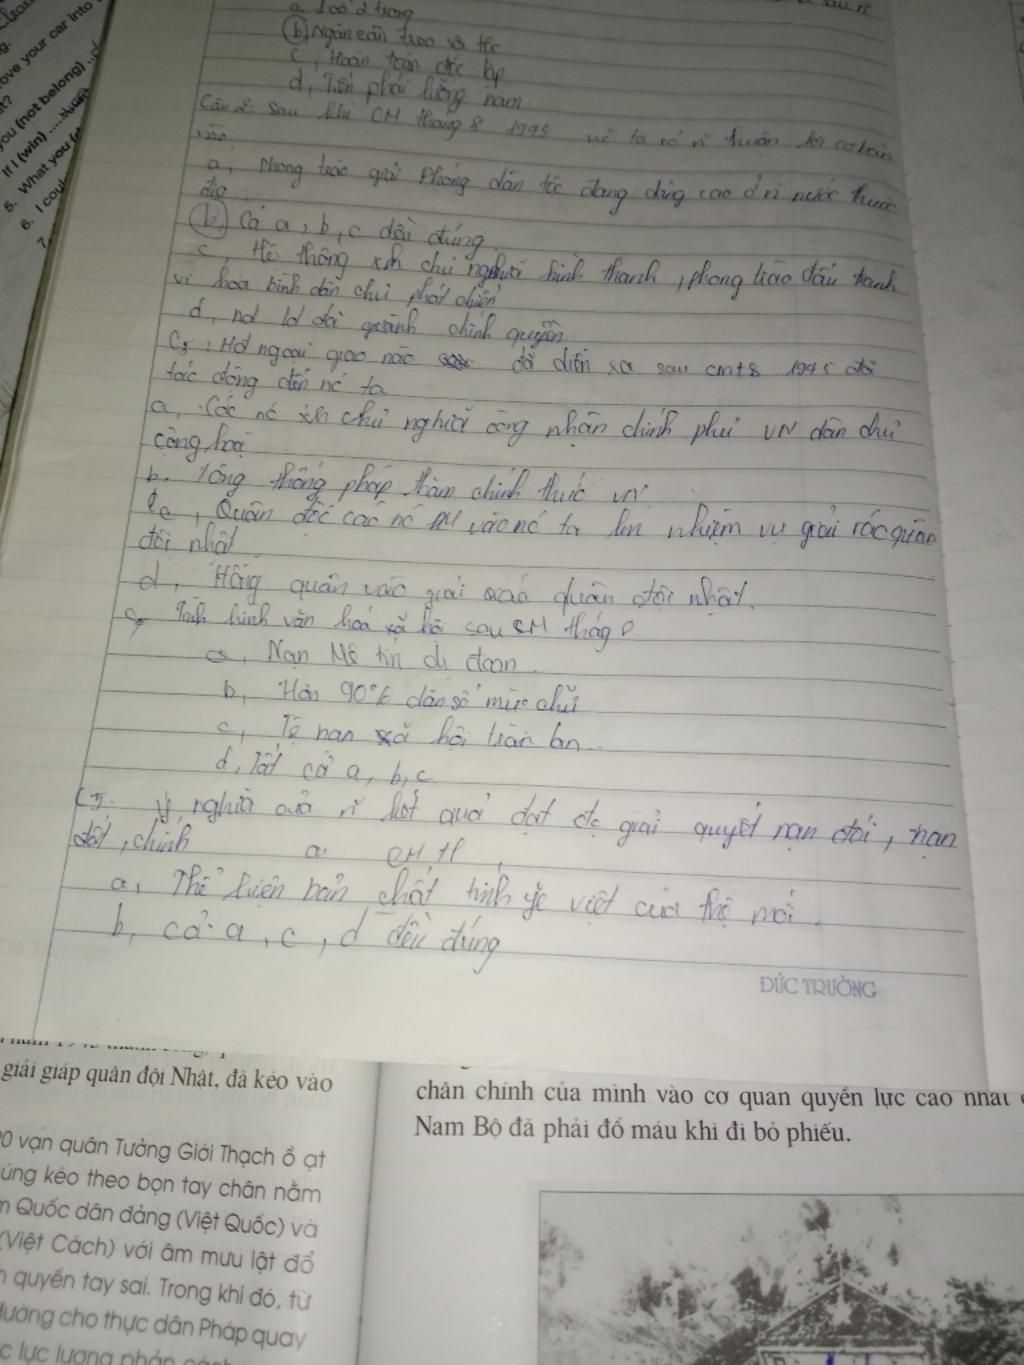 ove your car into
you (not belong)
If I (win)
5. What you
6. I coul
7.
a. 1 oo 2 trong
b, Ngàn cân treo sợi tóc
c, Hoàn toàn độc lập
d,
Câu 2: Sau khi CM tháng 8 1945 nc ta có n thuận lợi cơ bản
nào
a, Phong trào giải phóng dân tộc đang dâng cao ở n nước thuộc
địa
b, Cả a, b, c đều đúng
c, Hệ thống xh chủ nghĩa hình thành, phong trào đấu tranh
vì hoà bình dân chủ phát triển
d, nd ta đã giành chính quyền
C3: ngoại giao nào đã diễn ra sau cmt8 1945 đã
tác động đến nc ta
a, Các nc xh chủ nghĩa công nhận chính phủ VN dân chủ
cộng hoà
b. Tổng thống pháp thăm chính thức VN
c, Quân đội các nc vào nc ta làm nhiệm vụ giải quân
đội nhật
d, Hồng quân vào giải quân đội nhật.
Tình hình văn hoá xã hội sau CM tháng 8
a, Nạn Mê tín dị đoan
b, Hơn 90% dân số mù chữ
c, Tệ nạn xã hội tràn lan
d, Tất cả a, b, c
C5. Ý nghĩa của n kết quả đạt đc giải quyết nạn đói, nạn
dốt,
a, Thể hiện bản chất tính việt của mới.
b, cả a, c, d đều đúng
ĐỨC TRƯỜNG
giải giáp quân đội Nhật, đã kéo vào
0 vạn quân Tưởng Giới Thạch ồ ạt
úng kéo theo bọn tay chân nằm
Quốc dân đảng (Việt Quốc) và
(Việt Cách) với âm mưu lật đổ
quyền tay sai. Trong khi đó, từ
đường cho thực dân Pháp quay
lực lượng phản
chân chính của mình vào cơ quan quyền lực cao nhất
Nam Bộ đã phải đổ máu khi đi bỏ phiếu.